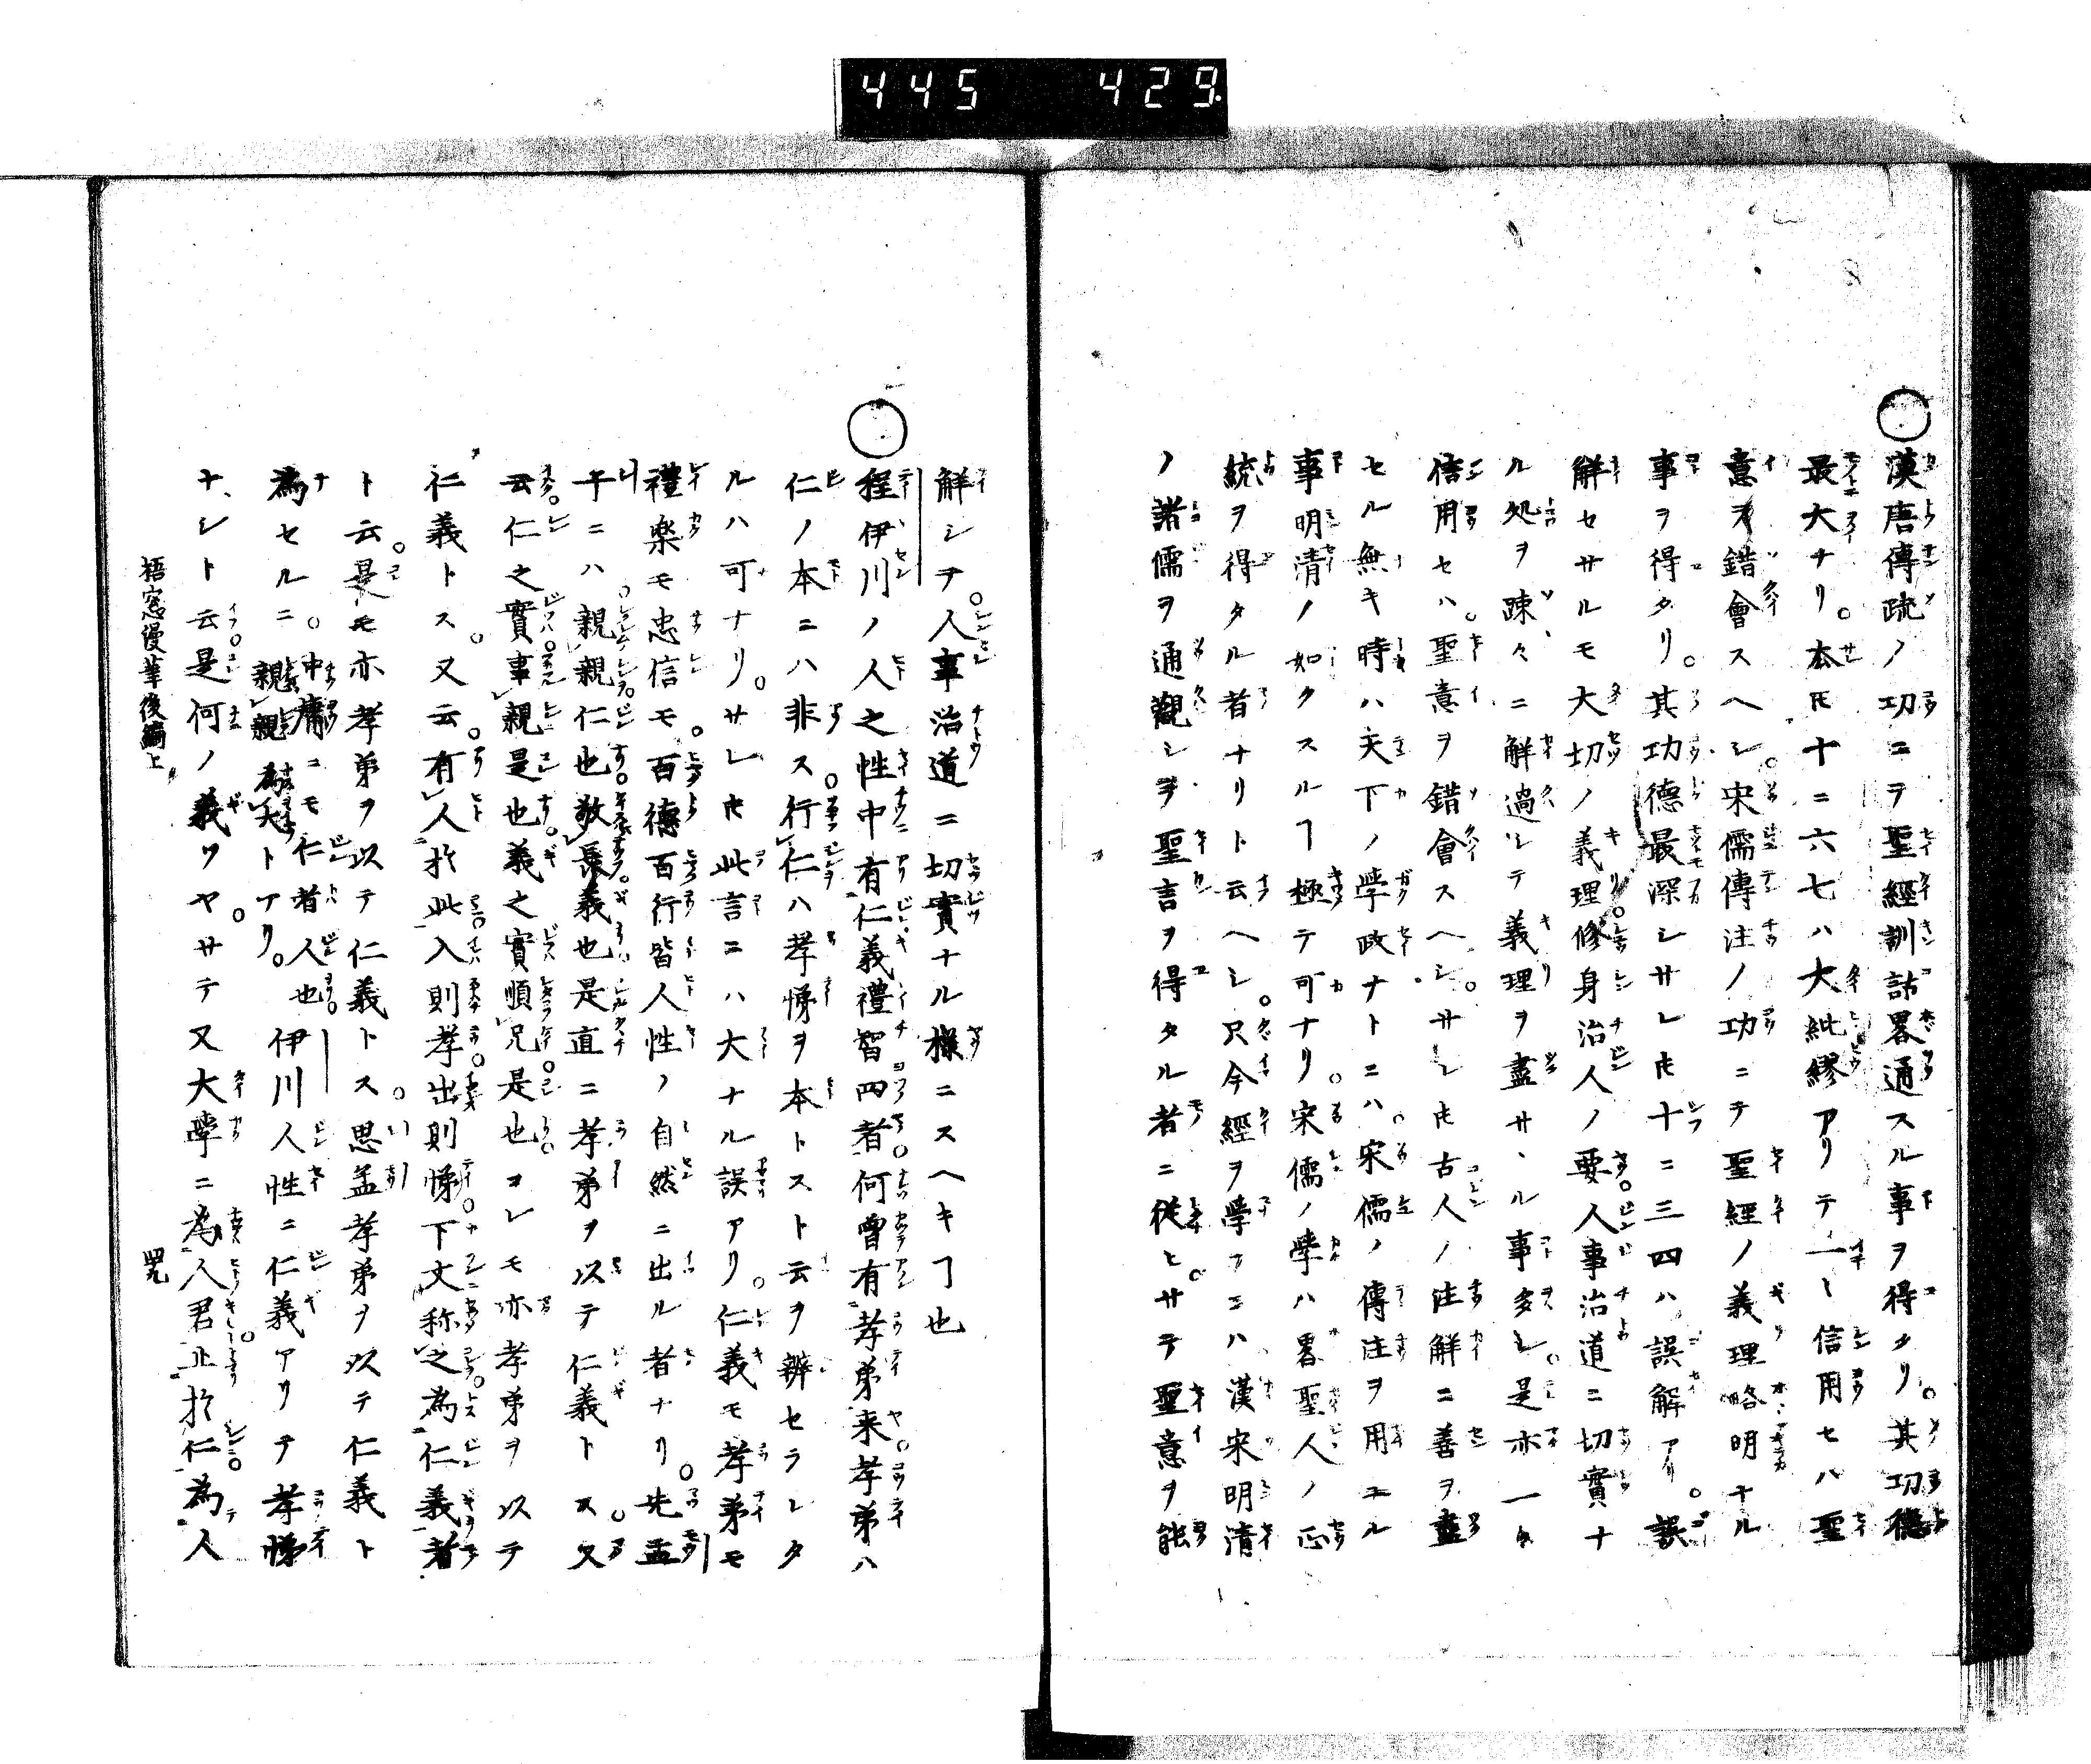 445 429
漢唐傳疏ノ功ニヲ聖經訓詁畧通スル事ヲ得タリ。其功德
最大ナリ。本ヨリ十ニ六七ハ大紕繆アリテ一〻信用セハ聖
意ヲ錯會スヘシ。宋儒傳注ノ功ニテ聖經ノ義理略明ナル
事ヲ得タリ。其功德最深シサレ𪜈十ニ三四ハ誤解アリ。誤
解セサルモ大切ノ義理修身治人ノ要人事治道ニ切實ナ
ル処ヲ疎々ニ解過シテ義理ヲ盡サヽル事多シ。是亦一〻
信用セハ。聖意ヲ錯會スヘシ。サレ𪜈古人ノ注解ニ善ヲ盡
セル無キ時ハ天下ノ學政ナトニハ。宋儒ノ傳注ヲ用ユル
事明清ノ如クスルヿ極テ可ナリ。宋儒ノ學ハ畧聖人ノ正
統ヲ得タル者ナリト云ヘシ。只今經ヲ學フニハ漢宋明清
ノ諸儒ヲ通觀シテ聖言ヲ得タル者ニ從ヒ。サテ聖意ヲ能
解シテ。人事治道ニ切實ナル樣ニスヘキヿ也
程伊川ノ人之性中有仁義禮智四者何曾有孝弟来孝弟ハ
仁ノ本ニハ非ス。行仁ハ孝悌ヲ本トスト云ヲ辨セラレタ
ルハ可ナリ。サレ𪜈此言ニハ大ナル誤アリ。仁義モ孝弟モ
禮楽モ忠信モ。百德百行皆人性ノ自然ニ出ル者ナリ。先孟
子ニハ。親親仁也。敬長義也是直ニ孝弟ヲ以テ仁義トス。又
云。仁之實事親是也。義之實順兄是也コレモ亦孝弟ヲ以テ
仁義トス。又云。有人於此。入則孝。出則悌。下文称之為仁義者
ト云。是モ亦孝弟ヲ以テ仁義トス。思孟孝弟ヲ以テ仁義ト
為セルニ。中庸ニモ仁者人也。親親為大トアリ。伊川人性ニ仁義アリテ孝悌
ナシト云。是何ノ義ソヤ。サテ又大學ニ為人君。止於仁。為人
梧窓漫筆後編上